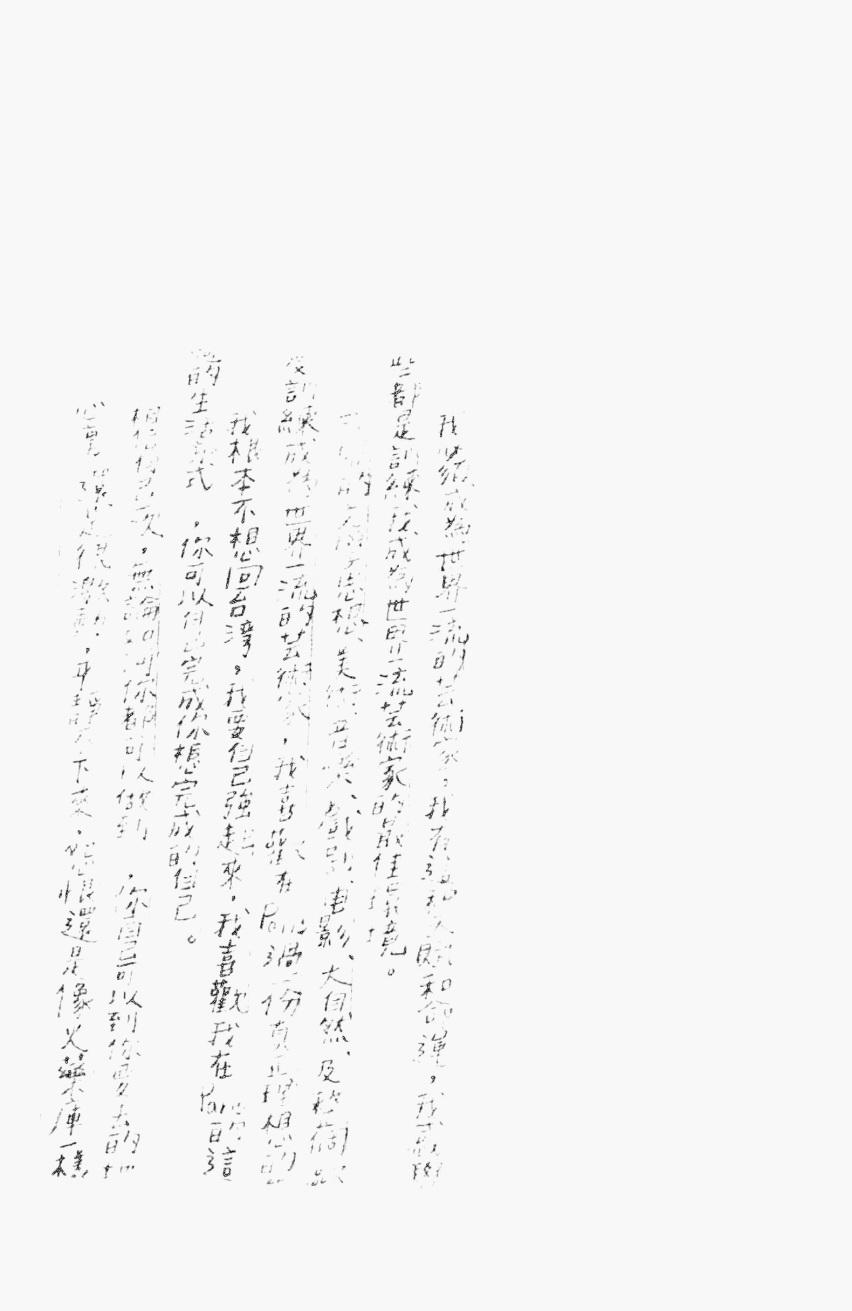 我將成為世界一流的芸術家，我有這種天賦和命運，我
些都是訓練我成為世界一流芸術家的最佳環境。
的文學、思想、美術、音樂、戲劇、電影、大自然、及整個歐
訓練成為世界一流的芸術家，我喜歡在Paris過一份真正理想的
我根本不想回台灣，我要自己強起來，我喜歡我在Paris的這
的生活方式，你可以自己完成你想完成的自己。
相信自己一次，無論如何你都可以做到，你自己可以到你要去的地
是很激動，平靜不下來，怨恨還是像火藥庫一樣